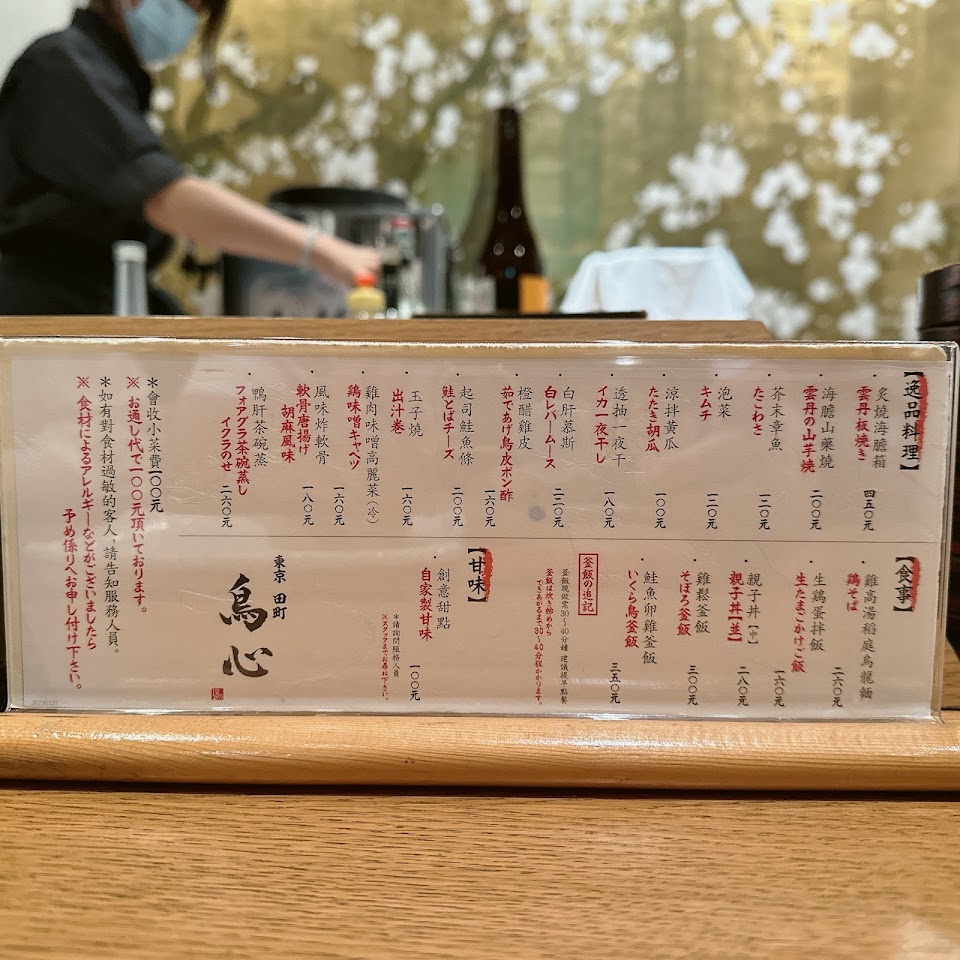 【逸品料理】
・炙燒海膽箱
雲丹板焼き
四五〇元
・海膽山藥燒
雲丹の山芋焼
二〇〇元
・芥末章魚
たこわさ
一二〇元
・泡菜
キムチ
一二〇元
・涼拌黃瓜
たたき胡瓜
一〇〇元
・透抽一夜干
イカ一夜干し
一八〇元
・白肝慕斯
白レバームース
二二〇元
・橙醋雞皮
茹であげ鳥皮ポン酢
一六〇元
・起司鮭魚條
鮭とばチーズ
二〇〇元
・玉子燒
出汁巻
一六〇元
・雞肉味噌高麗菜(冷)
鶏味噌キャベツ
一六〇元
・風味炸軟骨
軟骨唐揚げ
胡麻風味
一八〇元
・鴨肝茶碗蒸
フォアグラ茶碗蒸し
イクラのせ
二六〇元
【食事】
・雞高湯稻庭烏龍麵
鶏そば
二六〇元
・生雞蛋拌飯
生たまごかけご飯
一六〇元
・親子丼【中】
親子丼【並】
二八〇元
・雞鬆釜飯
そぼろ釜飯
三〇〇元
・鮭魚卵雞釜飯
いくら鳥釜飯
三五〇元
釜飯の追記
釜飯現做需30~40分鐘 建議提早點餐
釜飯は炊き始めから
できあがるまで30~40分程かかります。
【甘味】
・創意甜點
自家製甘味
一〇〇元
*請詢問服務人員
※スタッフまでお尋ね下さい。
東京 田町
鳥心
*會收小菜費100元
※お通し代で一〇〇元頂いております。
*如有對食材過敏的客人,請告知服務人員。
※食材によるアレルギーなどがございましたら
予め係りへお申し付け下さい。